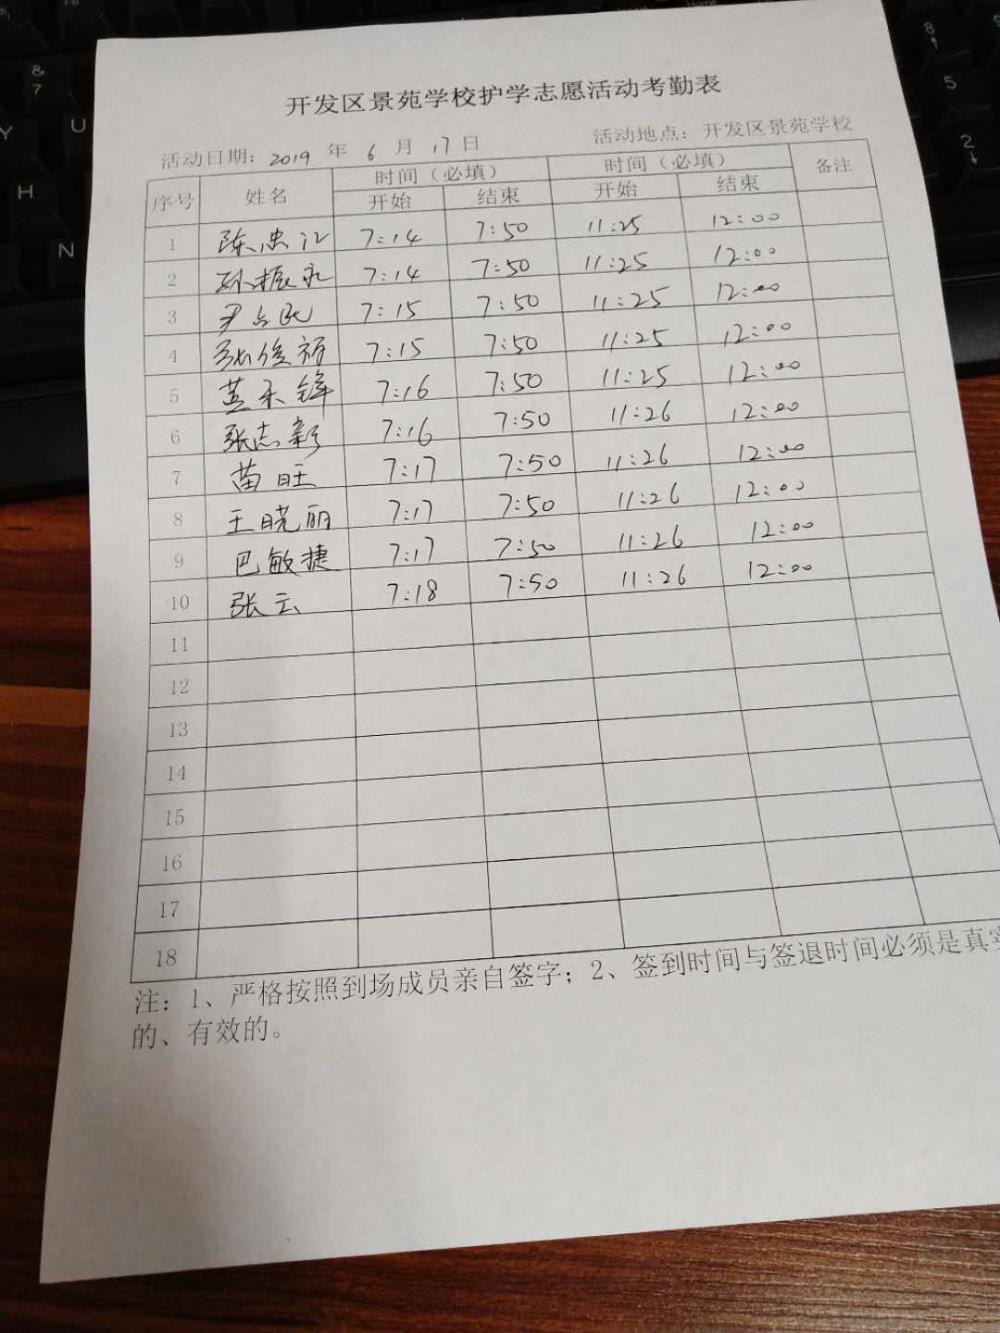 开发区景苑学校护学志愿活动考勤表
活动日期: 2019 年 6 月 17 日 活动地点: 开发区景苑学校
序号 姓名 时间（必填） 时间（必填） 备注
开始 结束 开始 结束
1 陈忠江 7:14 7:50 11:25 12:00
2 孙振永 7:14 7:50 11:25 12:00
3 尹占民 7:15 7:50 11:25 12:00
4 张俊 7:15 7:50 11:25 12:00
5 7:16 7:50 11:25 12:00
6 张志新 7:16 7:50 11:26 12:00
7 苗旺 7:17 7:50 11:26 12:00
8 王晓丽 7:17 7:50 11:26 12:00
9 巴敏捷 7:17 7:50 11:26 12:00
10 张云 7:18 7:50 11:26 12:00
11
12
13
14
15
16
17
18
注: 1、严格按照到场成员亲自签字；2、签到时间与签退时间必须是真实
的、有效的。
&
7
Y
U
H
N
8
5
2